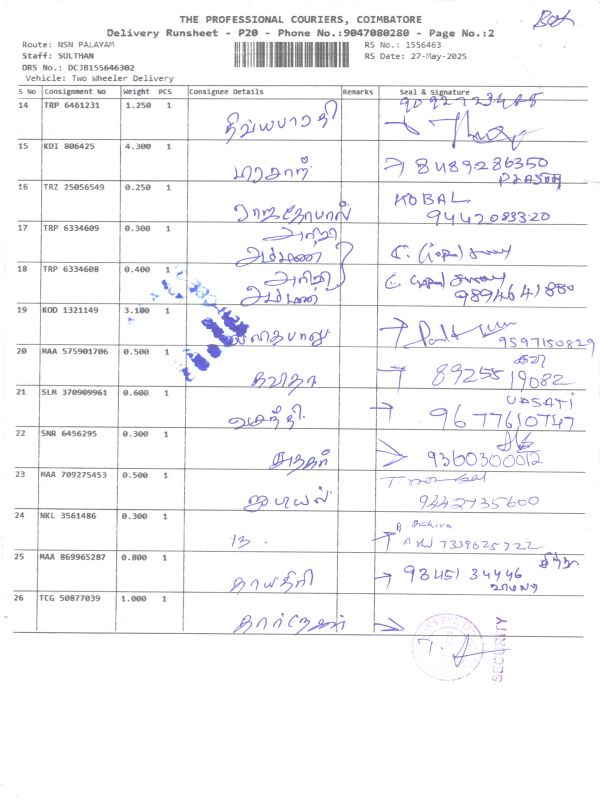 THE PROFESSIONAL COURIERS, COIMBATORE
Delivery Runsheet - P20 - Phone No.:9047080280 - Page No.:2
Route: NSN PALAYAM RS No.: 1556463
Staff: SULTHAN RS Date: 27-May-2025
DRS No.: DCJB155646302
Vehicle: Two Wheeler Delivery
S No Consignment No Weight PCS Consignee Details Remarks Seal & Signature
14 TRP 6461231 1.250 1 திவ்யபாரதி
15 KDI 806425 4.300 1 8489286350
16 TRZ 25056549 0.250 1 KOBAL
9442083320
17 TRP 6334609 0.300 1
18 TRP 6334608 0.400 1
9894641880
19 KOD 1321149 3.100 1 9597150829
20 MAA 575901706 0.500 1 கவிதா 8925519082
21 SLM 370909961 0.600 1 வசந்தி VASATI
9677610747
22 SNR 6456295 0.300 1 9360300012
23 MAA 709275453 0.500 1 9442735600
24 NKL 3561486 0.300 1 13 7339625722
25 MAA 869965287 0.800 1 காயத்ரி 9345134446
26 TCG 50877039 1.000 1
SECURITY